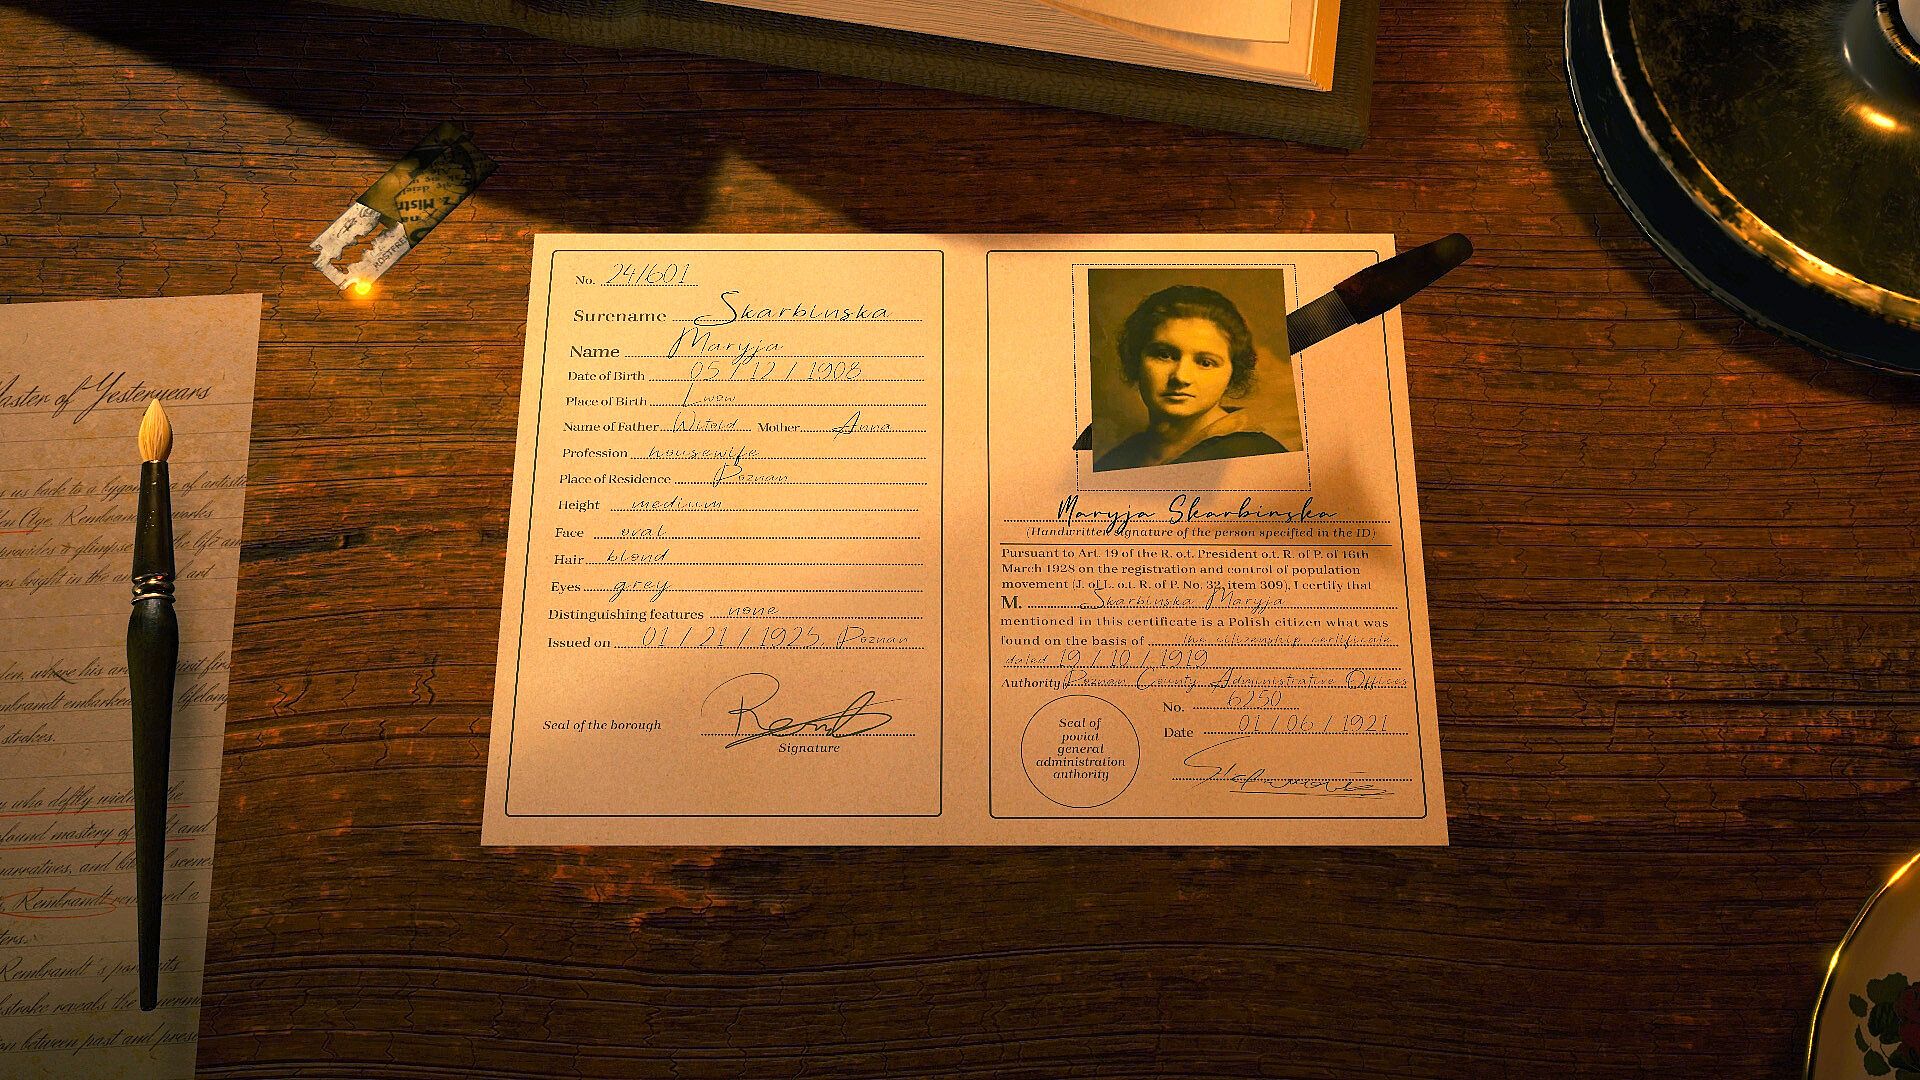 No. 24/601
Surename Skarbinska
Name Maryja
Date of Birth 05 / 12 / 1908
Place of Birth Lwow
Name of Father Witold Mother Anna
Profession housewife
Place of Residence Poznan
Height medium
Face oval
Hair blond
Eyes grey
Distinguishing features none
Issued on 01 / 21 / 1925, Poznan
Seal of the borough
Signature
Maryja Skarbinska
(Handwritten signature of the person specified in the ID)
Pursuant to Art. 19 of the R. o.t. President o.t. R. of P. of 16th
March 1928 on the registration and control of population
movement (J. of L. o.t. R. of P. No. 32, item 309), I certify that
M. Skarbinska Maryja
mentioned in this certificate is a Polish citizen what was
found on the basis of the citizenship certificate
dated 19 / 10 / 1919
Authority Poznan County Administrative Offices
No. 6250
Date 01 / 06 / 1921
Seal of
poviat
general
administration
authority
Master of Yesteryears
us back to a of
Age, Rembrandt works
provides a glimpse the life
bright in the art
where his
embarked lifelong
strokes.
who deftly the
mastery of and
narratives, and
Rembrandt
Rembrandt's
reveals the
between past and
z Mistr
na